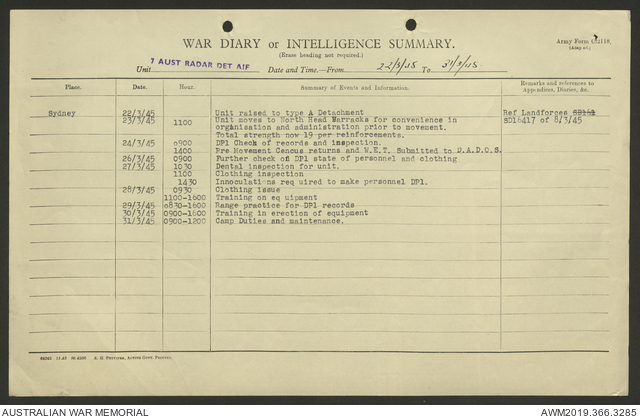 Army Form C.2118.
WAR DIARY or INTELLIGENCE SUMMARY.
(Erase heading not required.)
Unit 7 AUST RADAR DET AIF Date and Time.—From 22/3/45 To 31/3/45.
Place. Date. Hour. Summary of Events and Information. Remarks and references to Appendices, Diaries, &c.
Sydney 22/3/45 Unit raised to type A Detachment Ref Landforces
23/3/45 1100 Unit moves to North Head Warracks for convenience in SD16417 of 8/3/45
organisation and administration prior to movement.
Total strength now 19 per reinforcements.
24/3/45 0900 DP1 Check of records and inspection.
1400 Pre Movement Cencus returns and W.E.T. Submitted to D.A.D.O.S.
26/3/45 0900 Further check of DP1 state of personnel and clothing
27/3/45 1030 Dental inspection for unit.
1100 Clothing inspection
1430 Innoculations required to make personnel DP1.
28/3/45 0930 Clothing issue
1100-1600 Training on eq uipment
29/3/45 0830-1600 Range practice for DP1 records
30/3/45 0900-1600 Training in erection of equipment
31/3/45 0900-1200 Camp Duties and maintenance.
AUSTRALIAN WAR MEMORIAL AWM2019.366.3285